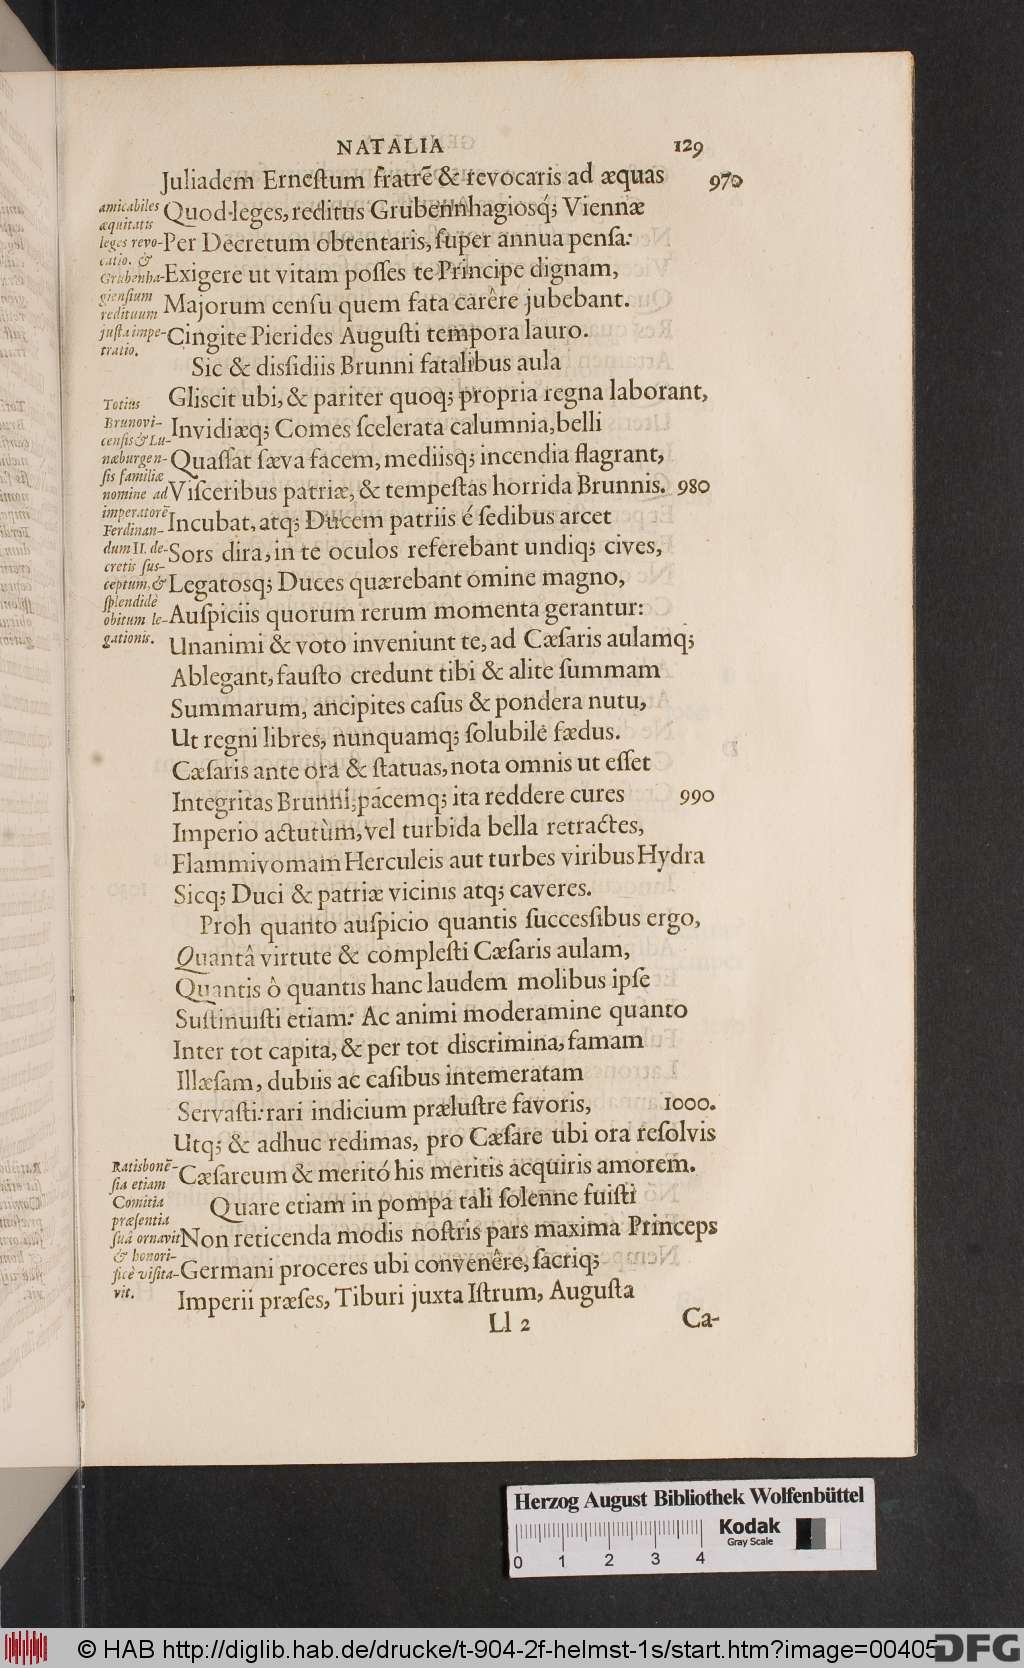 NATALIA 129
Juliadem Erneſtum fratrẽ & revocaris ad æquas 970
Quod leges, reditus Grubennhagiosq́; Viennæ
Per Decretum obtentaris, ſuper annua penſa:
Exigere ut vitam poſſes te Principe dignam,
Majorum cenſu quem fata carêre jubebant.
Cingite Pierides Auguſti tempora lauro.
amicabiles
æquitatis
leges revo-
catio. &
Grubenha-
gienſium
redituum
juſta impe-
tratio.
Sic & disſidiis Brunni fatalibus aula
Gliscit ubi, & pariter quoq; propria regna laborant,
Invidiæq; Comes ſcelerata calumnia, belli
Quaſſat ſæva facem, mediisq; incendia flagrant,
Viſceribus patriæ, & tempeſtas horrida Brunnis. 980
Incubat, atq; Ducem patriis é ſedibus arcet
Sors dira, in te oculos referebant undiq; cives,
Legatosq; Duces quærebant omine magno,
Auſpiciis quorum rerum momenta gerantur:
Unanimi & voto inveniunt te, ad Cæſaris aulamq;
Totius
Brunovi-
cenſis & Lu-
næburgen-
ſis familiæ
nomine ad
imperatorẽ
Ferdinan-
dum II. de-
cretis ſus-
ceptum, &
ſplendidè
obitum le-
gationis.
Ablegant, fauſto credunt tibi & alite ſummam
Summarum, ancipites caſus & pondera nutu,
Ut regni libres, nunquamq; ſolubile fædus.
Cæſaris ante ora & ſtatuas, nota omnis ut eſſet
Integritas Brunni, pacemq; ita reddere cures 990
Imperio actutùm, vel turbida bella retractes,
Flammivomam Herculeis aut turbes viribus Hydra
Sicq; Duci & patriæ vicinis atq; caveres.
Proh quanto auſpicio quantis ſuccesſibus ergo,
Quantâ virtute & compleſti Cæſaris aulam,
Quantis ô quantis hanc laudem molibus ipſe
Suſtinuiſti etiam: Ac animi moderamine quanto
Inter tot capita, & per tot discrimina, famam
Illæſam, dubiis ac caſibus intemeratam
Servaſti: rari indicium præluſtre favoris, 1000.
Utq; & adhuc redimas, pro Cæſare ubi ora reſolvis
Cæſareum & meritó his meritis acquiris amorem.
Quare etiam in pompa tali ſolenne fuiſti
Non reticenda modis noſtris pars maxima Princeps
Germani proceres ubi convenêre, ſacriq;
Imperii præſes, Tiburi juxta Iſtrum, Auguſta
Ratisbonẽ-
ſia etiam
Comitia
præſentia
ſuâ ornavit
& honori-
ficè viſita-
vit.
Ll 2 Ca-
Herzog August Bibliothek Wolfenbüttel
Kodak
Gray Scale
0 1 2 3 4
© HAB http://diglib.hab.de/drucke/t-904-2f-helmst-1s/start.htm?image=00405
DFG